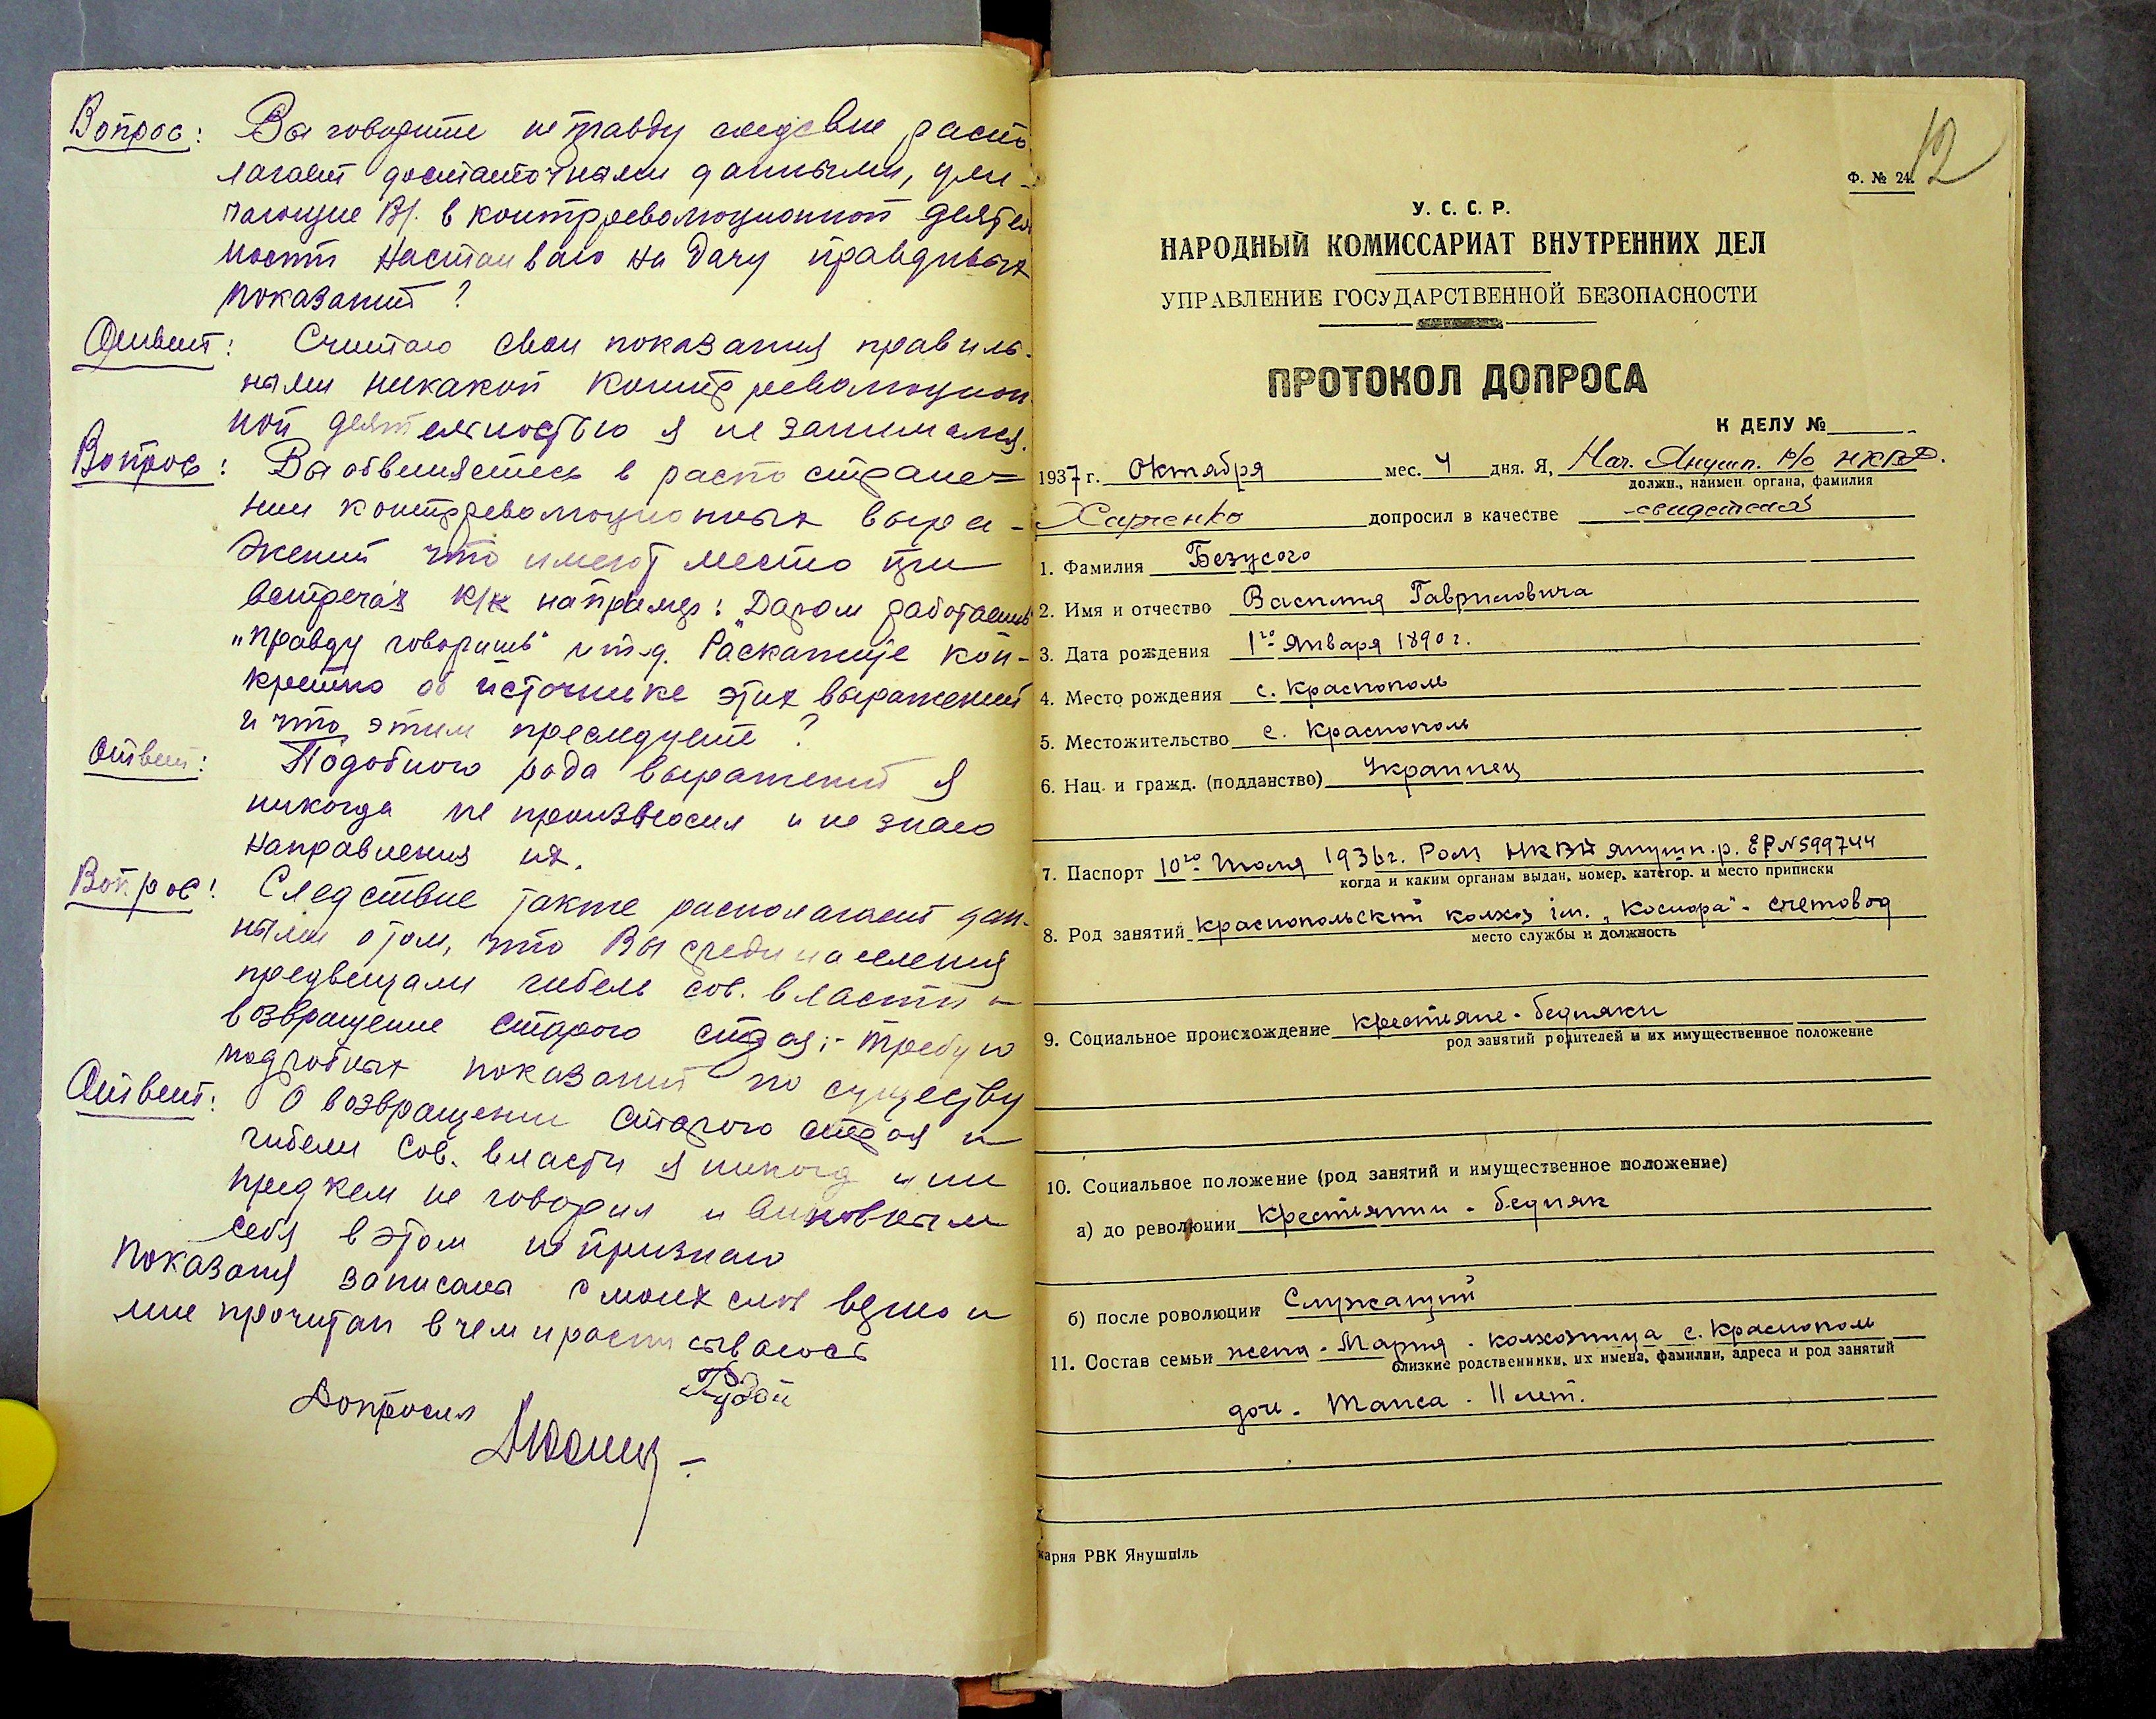 Вопрос: Вы говорите неправду следсвие распо
лагает достаточными данными, ули-
чающие Вас в контрреволюционной деятел
ности настаиваю на дачу правдивых
показаний?
Ответ: Считаю свои показания правиль-
ными никакой контрреволюцион
ной деятельностью я не занимался.
Вопрос: Вы обвиняетесь в распостране=
нии контрреволюционных выра-
жений что имеют место при
встречах к/к например: "Даром работаешь"
"правду говоришь" и т.д. Раскажите кон-
кретно об источнике этих выражений
и что этим преследуете?
Ответ: Подобного рода выражений я
никогда не произносил и не знаю
направления их.
Вопрос: Следствие также располагает дан-
ными о том, что Вы среди населения
предвещали гибель сов. власти и
возвращение старого строя;- требую
подробных показаний по существу
Ответ: О возвращении старого строя и
гибели Сов. власти я никогд и ни
пред кем не говорил и виновным
себя в этом не признаю
Показания записаны с моих слов верно и
мне прочитан в чем и росписываюсь
Рудой
Допросил
12
Ф. № 24.
У. С. С. Р.
НАРОДНЫЙ КОМИССАРИАТ ВНУТРЕННИХ ДЕЛ
УПРАВЛЕНИЕ ГОСУДАРСТВЕННОЙ БЕЗОПАСНОСТИ
ПРОТОКОЛ ДОПРОСА
К ДЕЛУ №
1937 г. Октября мес. 4 дня. Я, Нач. Янушп. Р/о НКВД.
должн., наимен. органа, фамилия
Харченко допросил в качестве свидетеля
1. Фамилия Безусого
2. Имя и отчество Василия Гавриловича
3. Дата рождения 1го Января 1890 г.
4. Место рождения с. Краснополь
5. Местожительство с. Краснополь
6. Нац. и гражд. (подданство) Украинец
7. Паспорт 10го Июля 1936г. Ром НКВД янушп. р. ЕР N 599744
когда и каким органам выдан, номер, категор. и место приписки
8. Род занятий Краснопольский колхоз ім. "Косиора" - счетовод
место службы и должность
9. Социальное происхождение крестьяне - бедняки
род занятий родителей и их имущественное положение
10. Социальное положение (род занятий и имущественное положение)
а) до революции Крестьянин - бедняк
б) после роволюции Служащий
11. Состав семьи жена - Мария - колхозница с. Краснополь
близкие родственники, их имена, фамилии, адреса и род занятий
доч. Таиса - 11 лет.
карня РВК Янушпіль